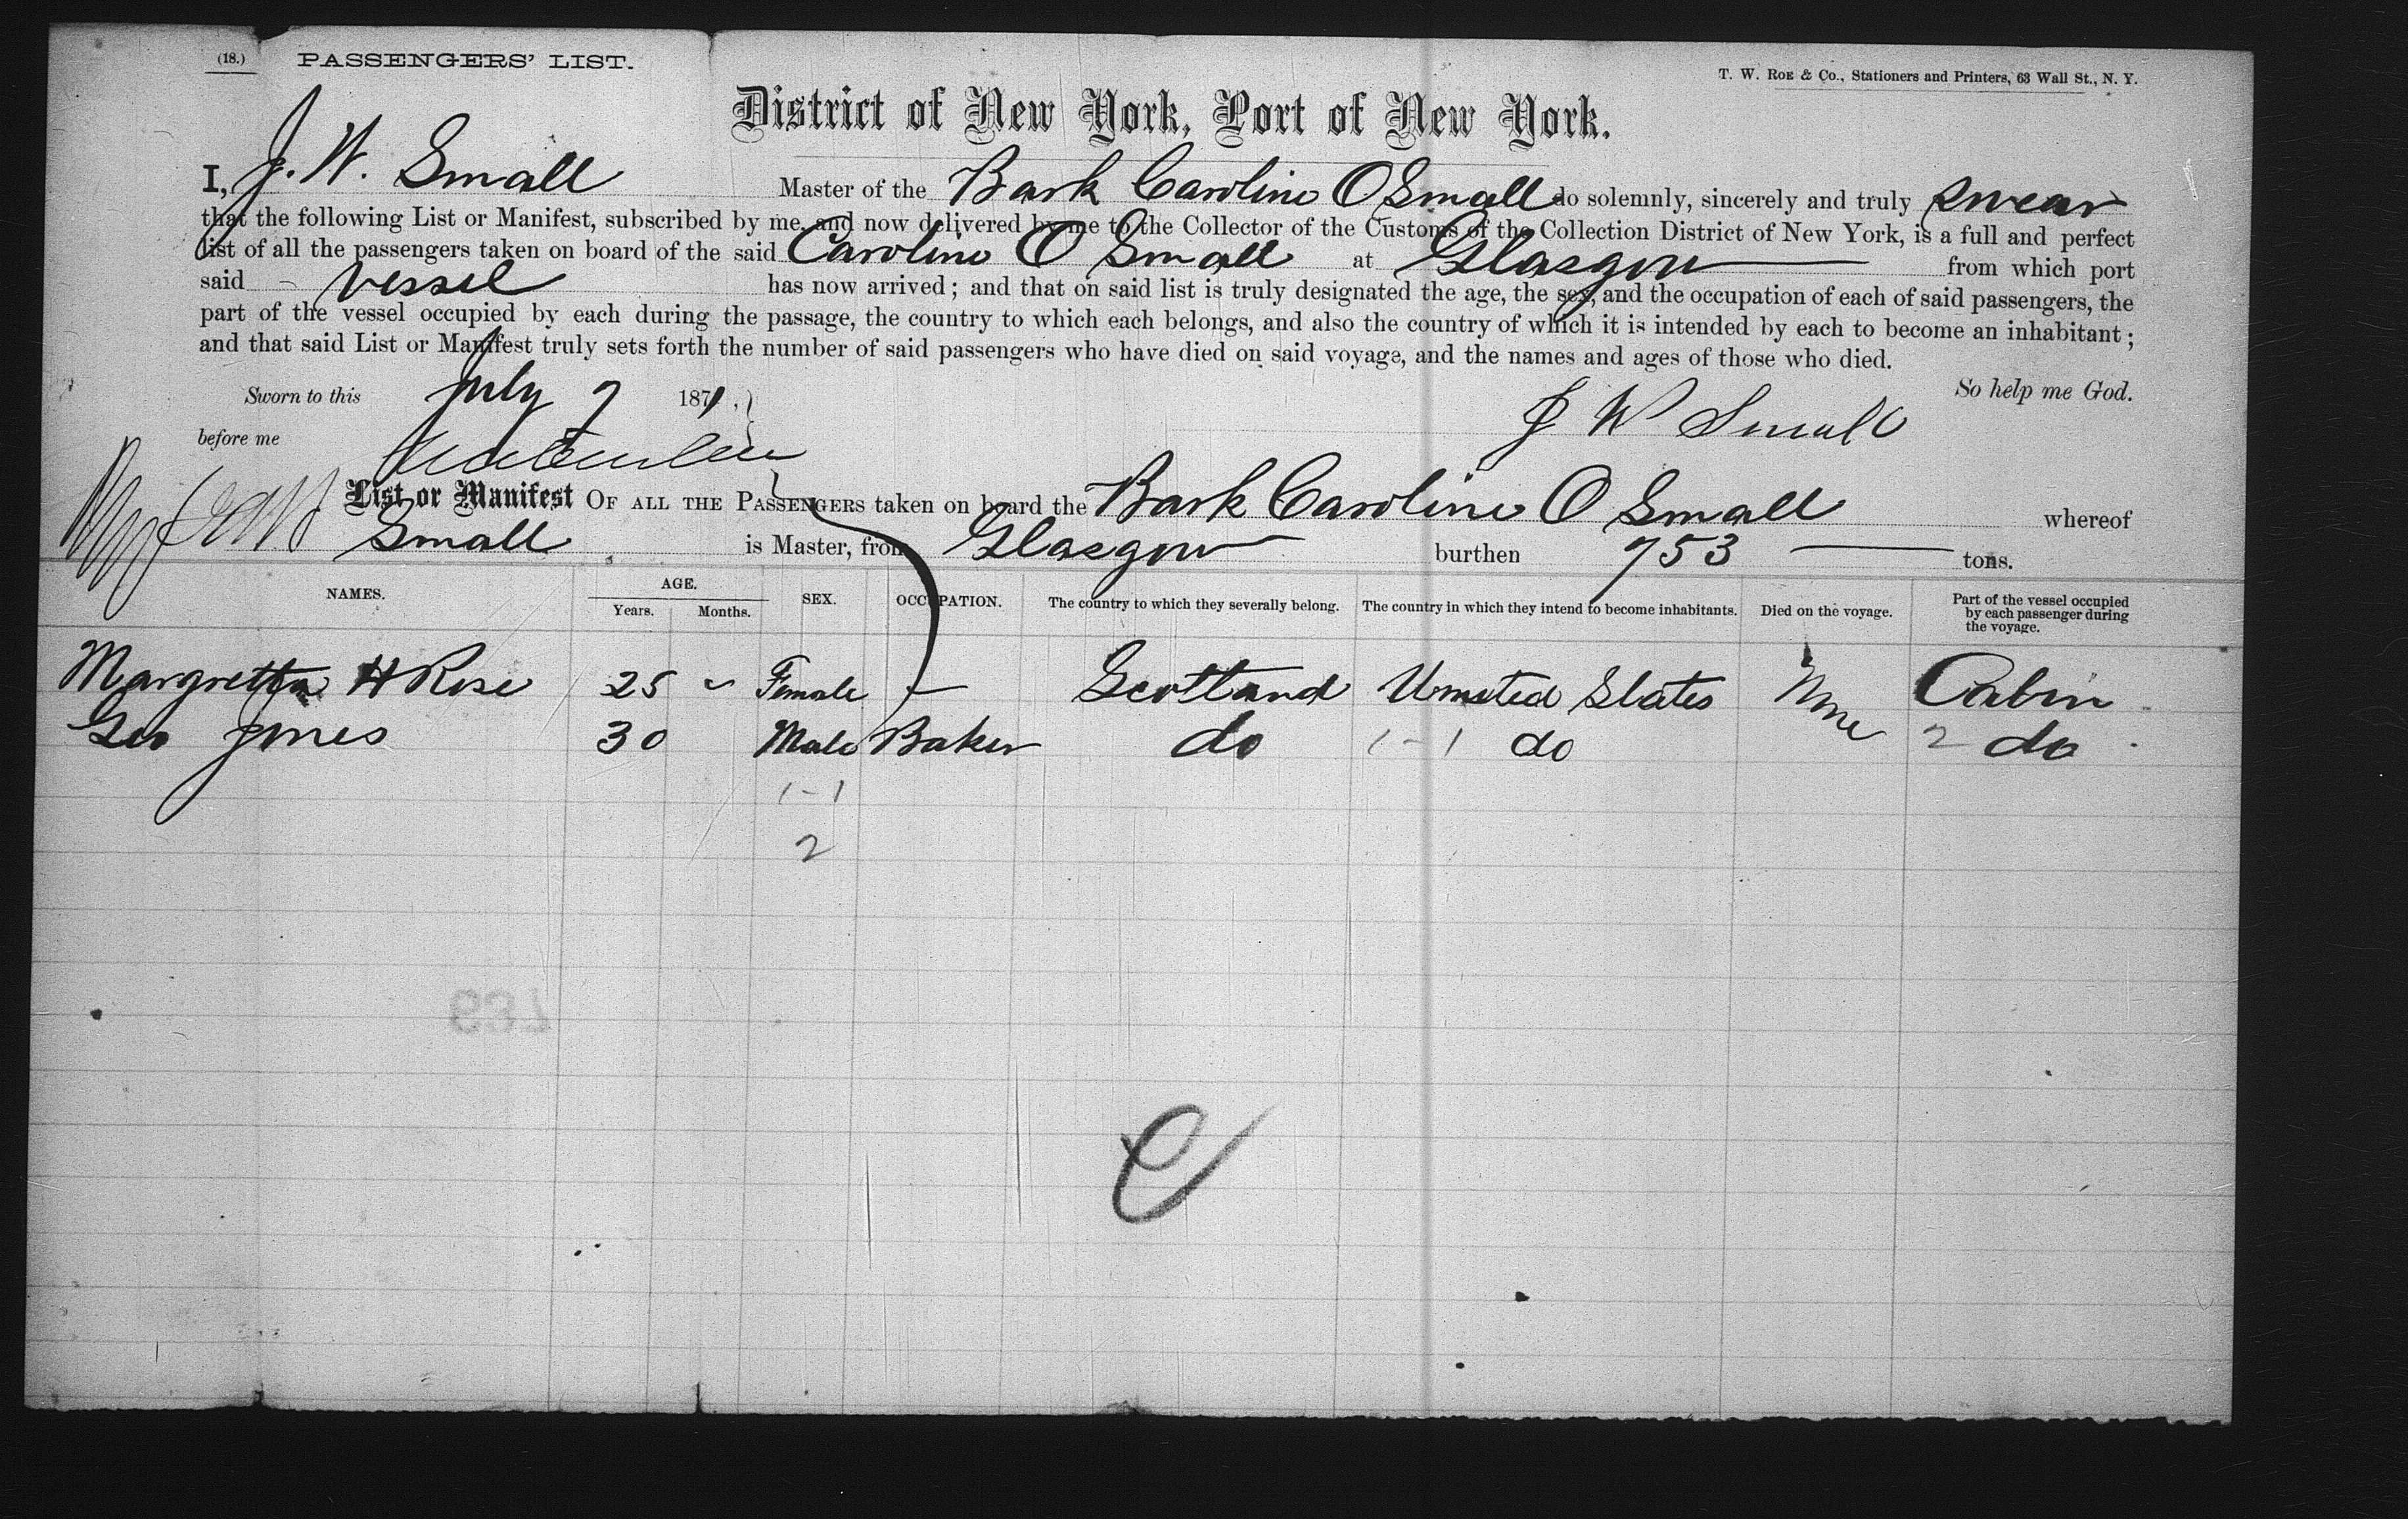 (18.) PASSENGERS' LIST.
T. W. ROE & Co., Stationers and Printers, 63 Wall St., N. Y.
District of New York, Port of New York.
I, J. W. Small Master of the Bark Caroline O Small do solemnly, sincerely and truly swear
that the following List or Manifest, subscribed by me, and now delivered by me to the Collector of the Customs of the Collection District of New York, is a full and perfect
list of all the passengers taken on board of the said Caroline O Small at Glasgow from which port
said vessel has now arrived; and that on said list is truly designated the age, the sex, and the occupation of each of said passengers, the
part of the vessel occupied by each during the passage, the country to which each belongs, and also the country of which it is intended by each to become an inhabitant;
and that said List or Manifest truly sets forth the number of said passengers who have died on said voyage, and the names and ages of those who died.
So help me God.
Sworn to this July 7 1871,
J W Small
before me
List or Manifest OF ALL THE PASSENGERS taken on board the Bark Caroline O Small whereof
Small is Master, from Glasgow burthen 753 tons.
NAMES. AGE. Years. Months. SEX. OCCUPATION. The country to which they severally belong. The country in which they intend to become inhabitants. Died on the voyage. Part of the vessel occupied by each passenger during the voyage.
Margretta H Rose 25 - Female - Scotland United States None Cabin
Geo Jones 30 Male Baker do 1-1 do 2 do
1-1
2
C